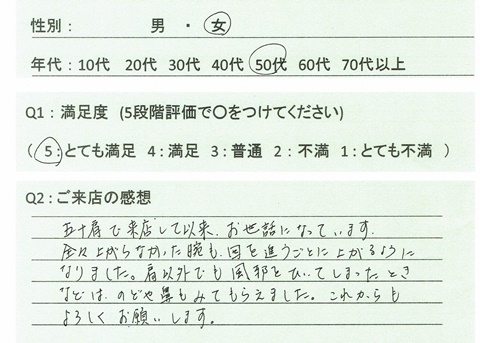 性別： 男 ・ 女
年代：10代 20代 30代 40代 50代 60代 70代以上
Q1：満足度 (5段階評価で〇をつけてください)
( 5：とても満足 4：満足 3：普通 2：不満 1：とても不満 )
Q2：ご来店の感想
五十肩で来店して以来、お世話になっています。
全々上がらなかった腕も、回を追うごとに上がるように
なりました。肩以外でも風邪をひいてしまったとき
などは、のどや鼻もみてもらえました。これからも
よろしくお願いします。